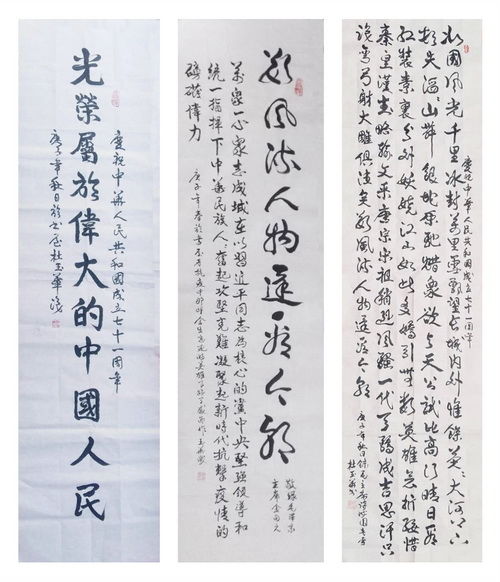 慶祝中華人民共和國成立七十一周年
光榮屬於偉大的中國人民
庚子年秋日於
数風流人物還看今朝
敬録毛澤東
主席金句
萬众一心众志成城在以習近平同志為核心的黨中央堅强领導和
統一指揮下中華民族人人奮起攻堅克難凝聚起新時代抗擊疫情的
磅礴偉力
庚子年春
北國風光千里冰封萬里雪飄望長城内外惟餘莽莽大河上下
慶祝中華人民共和國成立七十一周年
頓失滔滔山舞銀蛇原馳蜡象欲與天公試比高須晴日看
紅裝素裹分外妖娆江山如此多嬌引無数英雄競折腰惜
秦皇漢武略输文采唐宗宋祖稍遜風骚一代天驕成吉思汗只
識彎弓射大雕俱往矣数風流人物還看今朝
庚子年秋日録毛主席詩沁園春雪